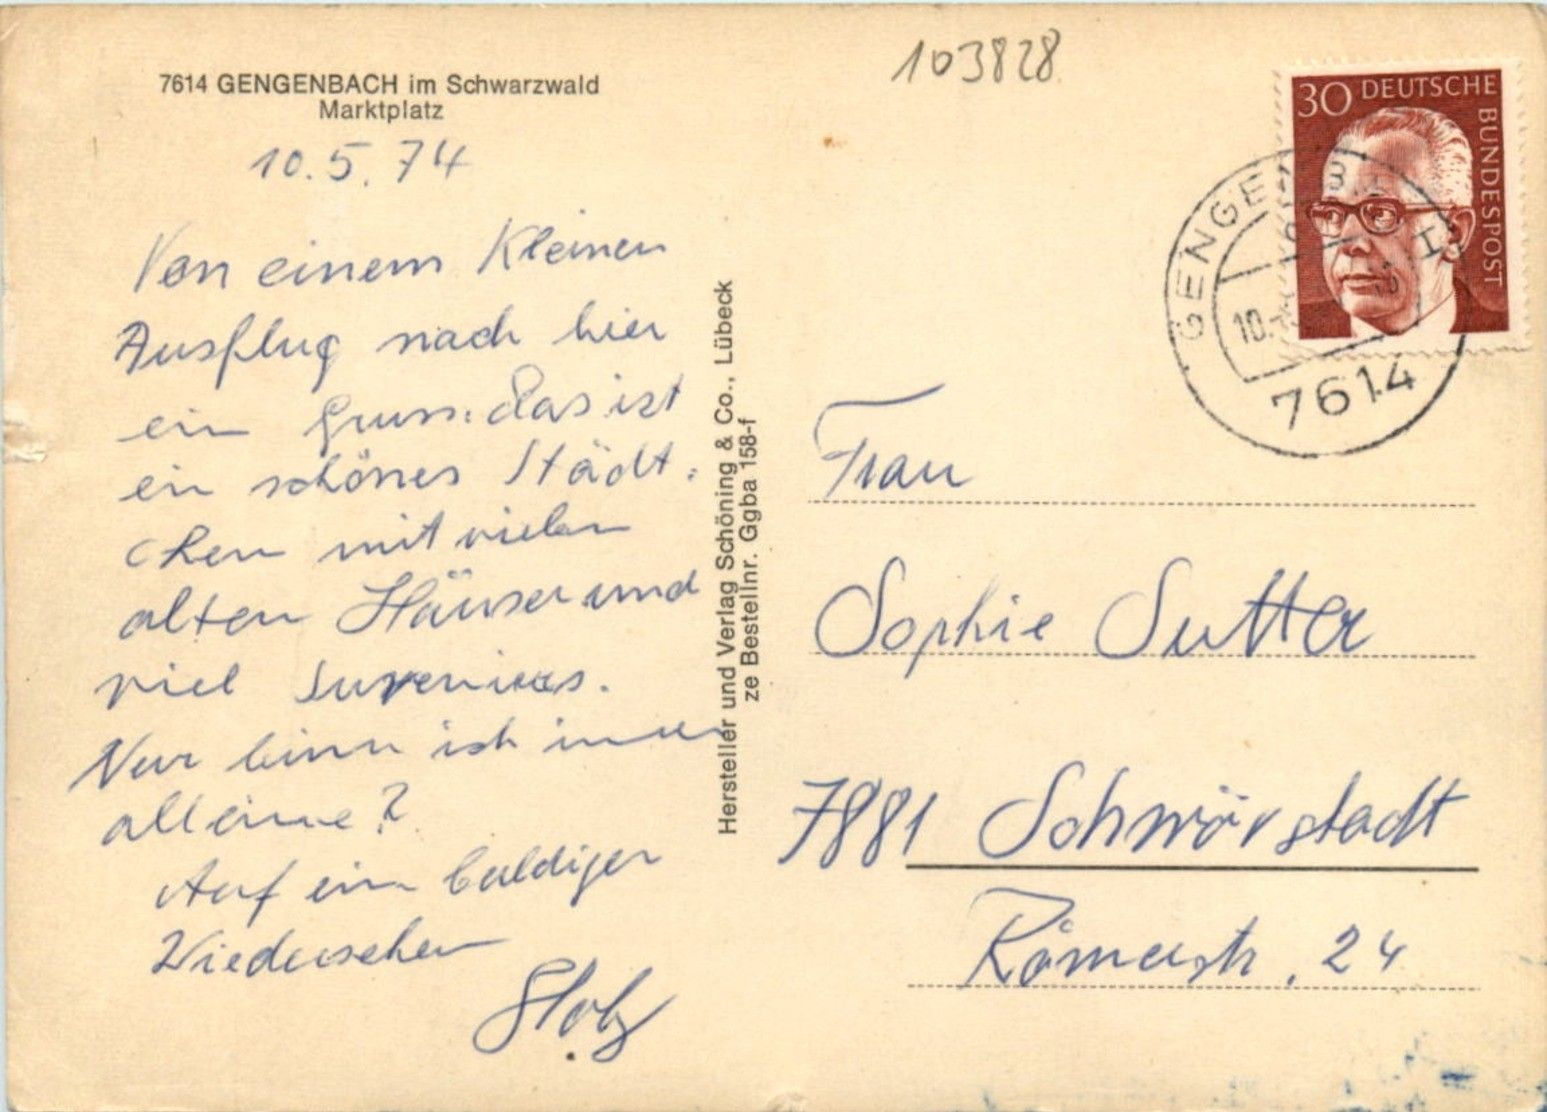 7614 GENGENBACH im Schwarzwald
Marktplatz
10.5.74
Von einem Kleinen
Ausflug nach hier
ein Gruss. Das ist
ein schönes Städt-
chen mit vielen
alten Häuser und
viel Suvenirs.
Nur binn ich immer
alleine?
Auf ein baldiger
Wiedersehen
Stolz
Hersteller und Verlag Schöning & Co., Lübeck
ze Bestellnr. Ggba 158-f
103828
30 DEUTSCHE
BUNDESPOST
GENGENBACH
10.
7614
Frau
Sophie Sutter
7881 Schwörstadt
Römerstr. 24